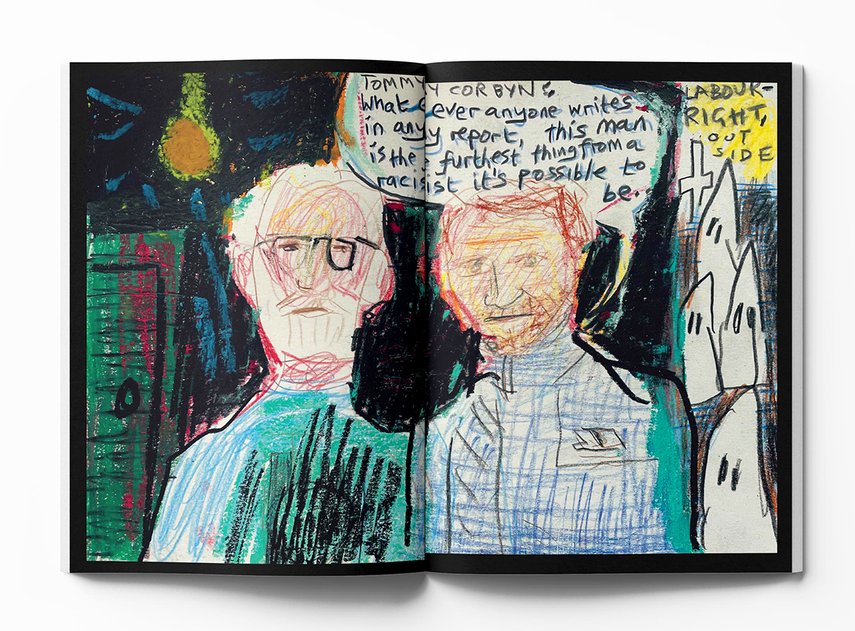 TOMMY CORBYN:
Whatever anyone writes
in any report, this man
is the furthest thing from a
racist it's possible to
be.
LABOUR-
RIGHT,
OUT
SIDE